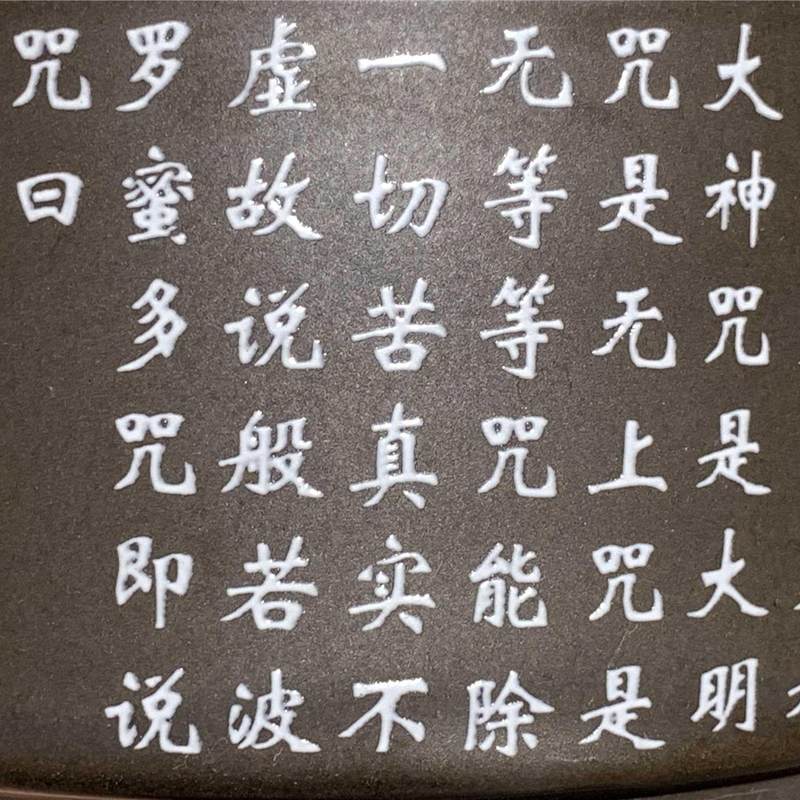 大神咒是大明
咒是无上咒是
无等等咒能除
一切苦真实不
虚故说般若波
罗蜜多咒即说
咒曰